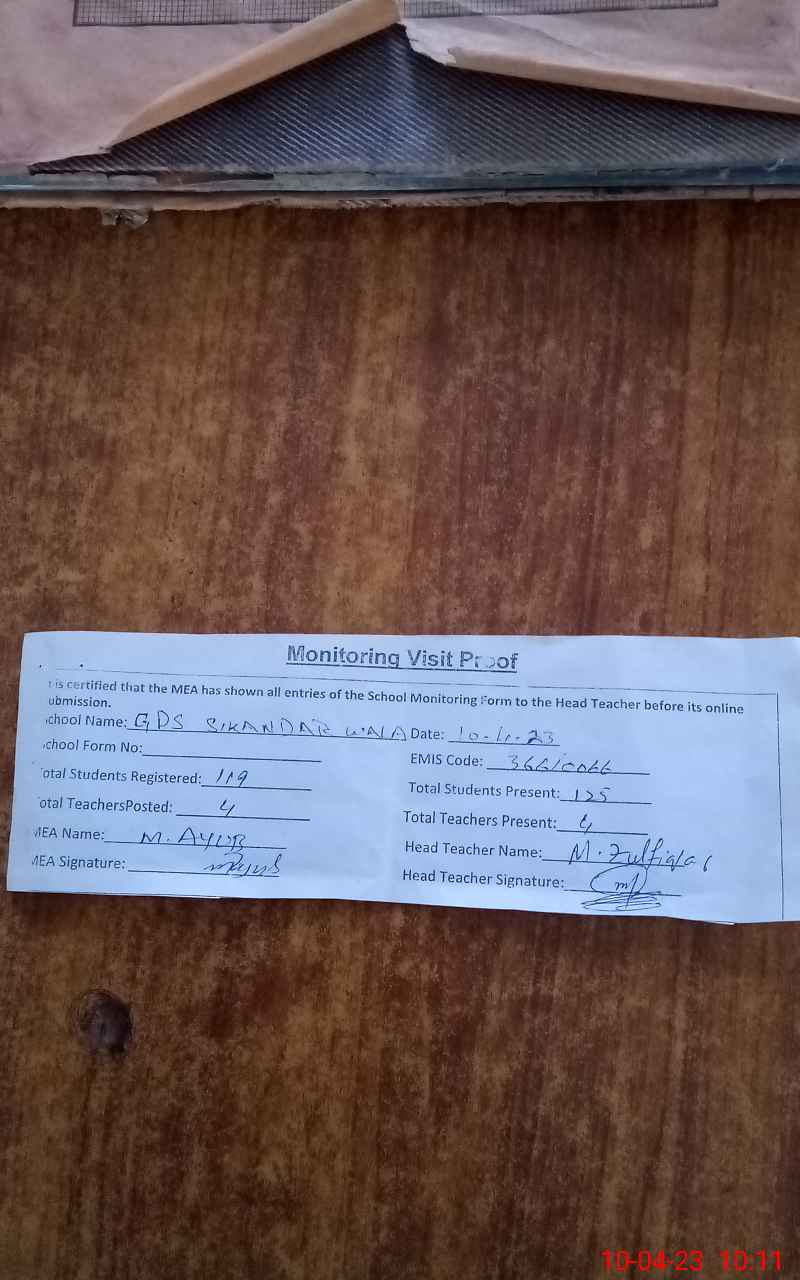 Monitoring Visit Proof
t is certified that the MEA has shown all entries of the School Monitoring Form to the Head Teacher before its online
ubmission.
chool Name: GPS SIKANDAR WALA Date: 10-4-23
chool Form No: EMIS Code:
otal Students Registered: 119 Total Students Present: 125
otal TeachersPosted: 4 Total Teachers Present: 4
MEA Name: M. AYUB Head Teacher Name: M. Zulfiqar
MEA Signature: Head Teacher Signature:
10-04-23 10:11